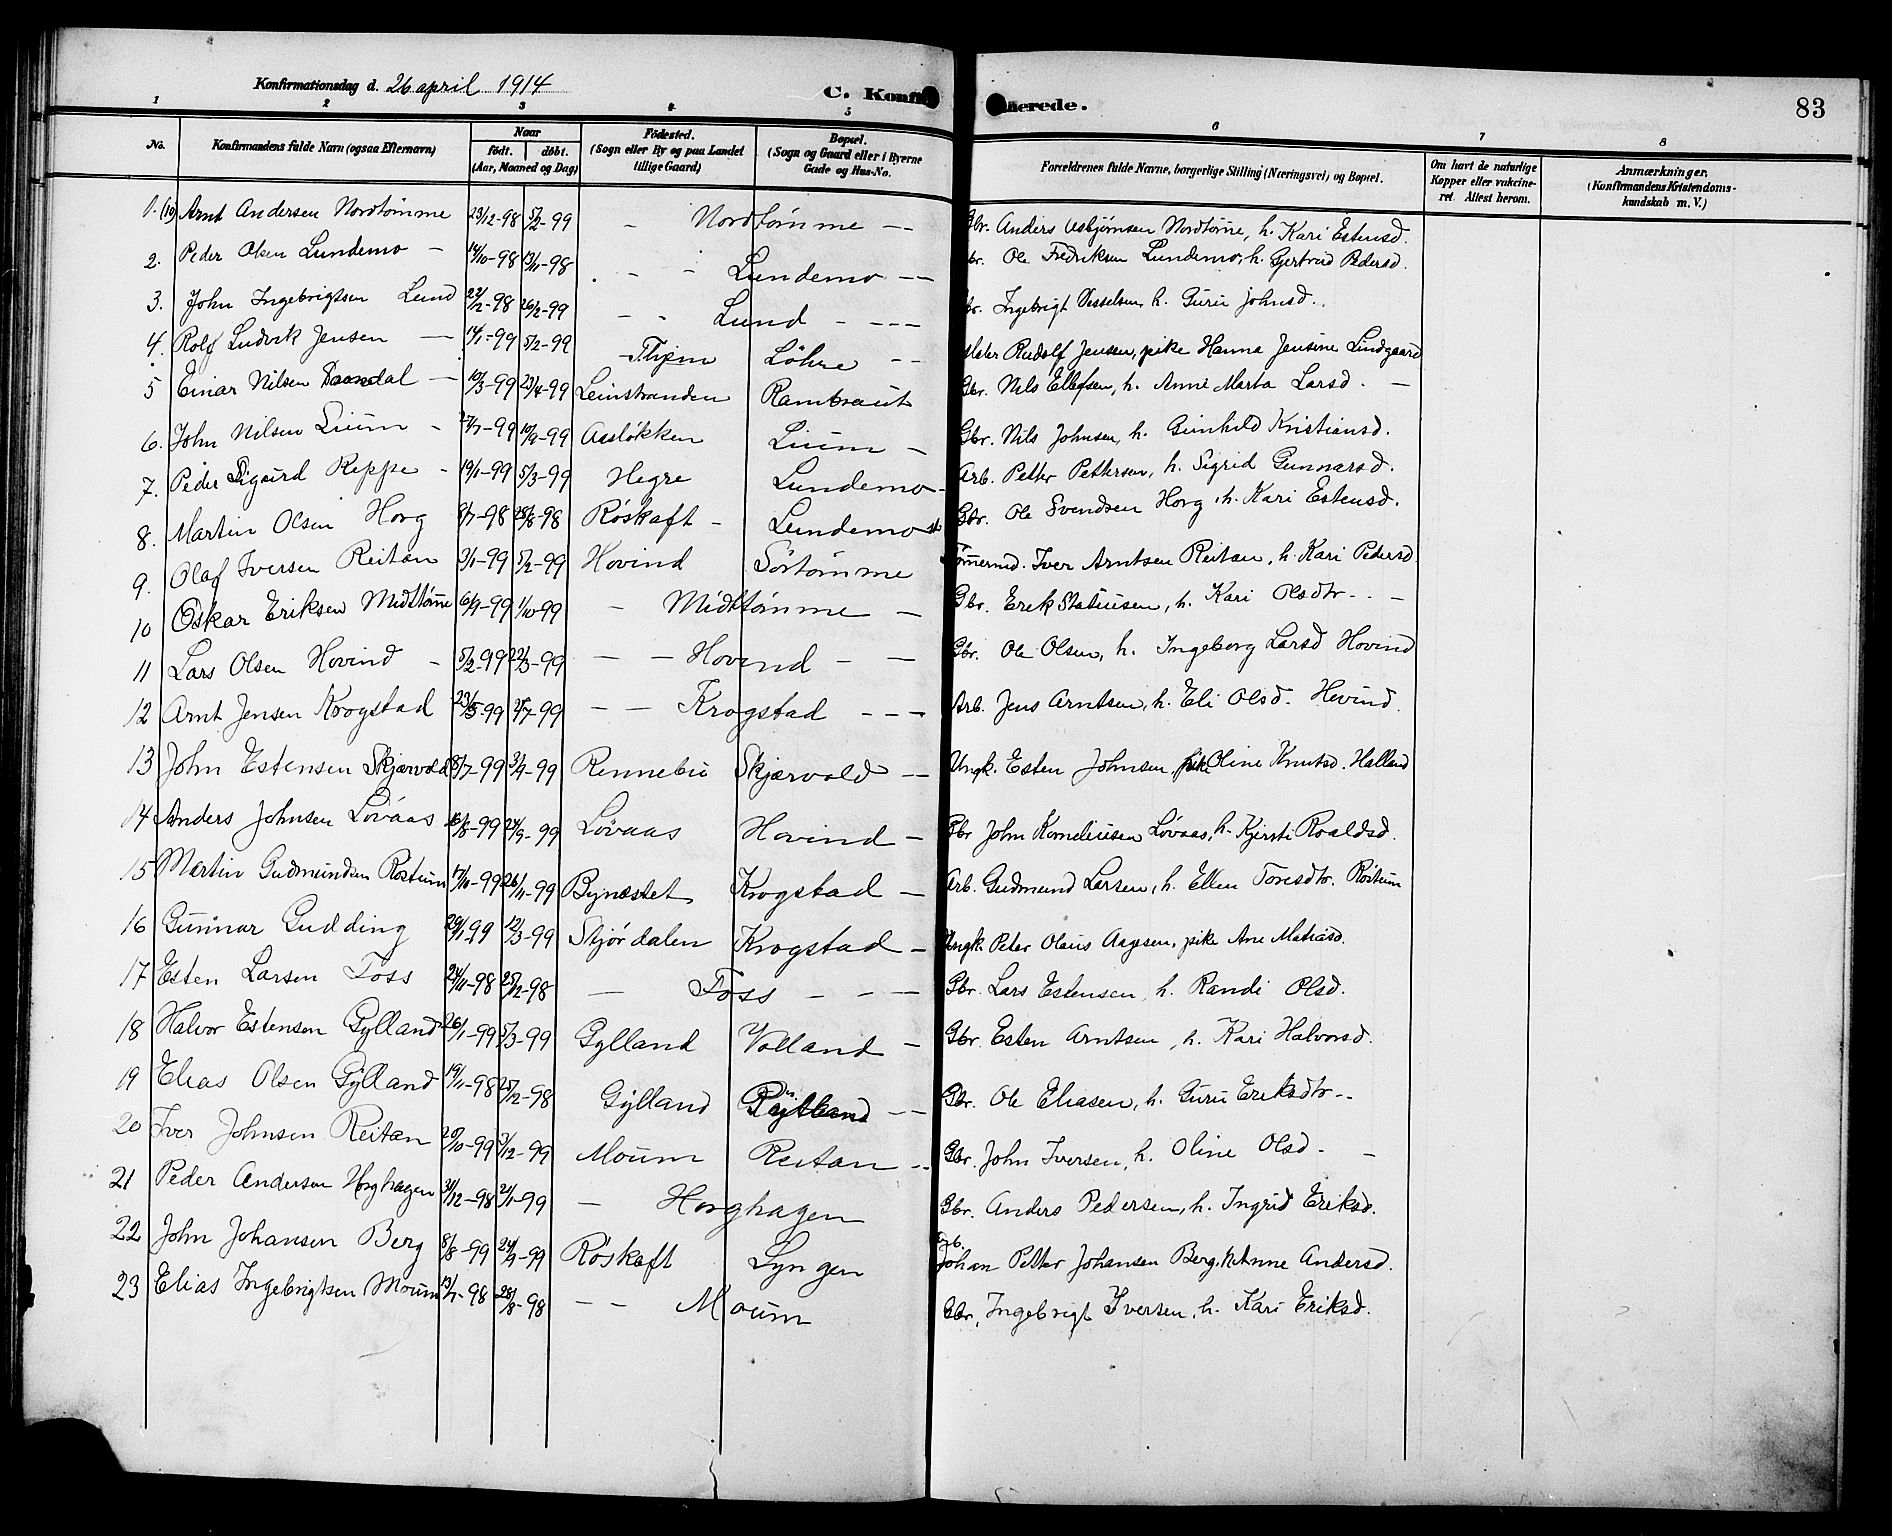 Konfirmationsdag d. 26 april 1914
C. Konfirmerede.
83
1 2 3 4 5 6 7 8
No. Konfirmandens fulde Navn (ogsaa Efternavn) Naar født. døbt. (Aar, Maaned og Dag) Fødested. (Sogn eller By og paa Landet tillige Gaard) Bopæl. (Sogn og Gaard eller i Byerne Gade og Hus-No. Forældrenes fulde Navne, borgerlige Stilling (Næringsvei) og Bopæl. Om havt de naturlige Kopper eller vakcineret. Attest herom. Anmærkninger. (Konfirmandens Kristendomskundskab m. V.)
1. (10) Arnt Andersen Nordtømme 23/12-98 5/2-99 - Nordtømme -- Gbr. Anders Asbjørnsen Nordtømme, h. Kari Estensd.
2. Peder Olsen Lundemo - 14/10-98 13/11-98 - - Lundemo -- Gbr. Ole Fredriksen Lundemo, h. Gjertrud Pedersd.
3. John Ingebrigtsen Lund 22/12-98 26/2-99 - - Lund - --- Gbr. Ingebrigt Vesselsen, h. Guru Johnsd.
4. Rolf Ludvik Jensen - 14/1-99 5/2-99 Thjem Løhre -- Maler Rudolf Jensen, pike Hanna Jensine Lindgaard
5 Einar Nilsen - 10/3-99 23/4-99 Leinstranden Rambraut Gbr. Nils Ellefsen, h. Anne Marta Larsd. -
6. John Nilsen Lium - 27/7-99 10/9-99 Aasløkken Lium - Gbr. Nils Johnsen, h. Gunhild Kristiansd.
7. Peder Sigurd Reppe - 19/1-99 5/3-99 Hegre Lundemo- Arb. Petter Pettersen, h. Sigrid Gunnarsd.
8. Martin Olsen Horg 8/7-98 28/8-98 Røskaft - Lundemo Gbr. Ole Svendsen Horg, h. Kari Estensd.
9. Olaf Iversen Reitan 3/1-99 5/2-99 Hovind Sørtømme Tømermd. Iver Arntsen Reitan, h. Kari Pedersd.
10 Oskar Eriksen Midttømme 6/9-99 1/10-99 - Midttømme - Gbr. Erik Statiusen, h. Kari Olsdtr. - -
11 Lars Olsen Hovind - 5/2-99 22/3-99 - - Hovind - - Gbr. Ole Olsen, h. Ingeborg Larsd Hovind
12 Arnt Jensen Krogstad 23/5-99 2/7-99 - - Krogstad - - - Arb. Jens Arntsen, h. Eli Olsd. Hovind.
13 John Estensen Skjærvold 8/7-99 3/9-99 Rennebu Skjærvold -- Ungk. Esten Johnsen, pike Oline Knutsd. Halland
14 Anders Johnsen Løvaas 16/8-99 24/9-99 Løvaas Hovind - Gbr John Korneliusen Løvaas, h. Kjersti Roaldsd.
15 Martin Gudmundsen Røstum 17/10-99 26/11-99 Bynæstet Krogstad - Arb. Gudmund Larsen, h. Ellen Toresdtr. Røstum
16 Gunnar Gudding 29/1-99 12/3-99 Stjørdalen Krogstad - Ungk. Peter Olaus Aagesen, pike Ane Matiasd.
17 Esten Larsen Foss 24/11-98 25/12-98 - Foss - - - Gbr. Lars Estensen, h. Randi Olsd.
18 Halvor Estensen Gylland 26/1-99 5/3-99 Gylland Volland - Gbr. Esten Arntsen, h. Kari Halvorsd.
19 Elias Olsen Gylland 19/11-98 25/12-98 Gylland -- Gbr. Ole Eliasen, h. Guru Eriksdtr --
20 Iver Johnsen Reitan 20/10-99 3/12-99 Moum Reitan -- Gbr. John Iversen, h. Oline Olsd. -
21 Peder Andersen Horghagen 31/12-98 2/1-99 - Horghagen Gbr. Anders Pedersen, h. Ingrid Eriksd.
22 John Johansen Berg 8/8-99 24/9-99 Røskaft Lyngen Johan Petter Johansen Berg, h. Anne Andersd.
23 Elias Ingebrigtsen Moum 13/7-98 28/8-98 -- Moum Gbr, Ingebrigt Iversen, h. Kari Eriksd.